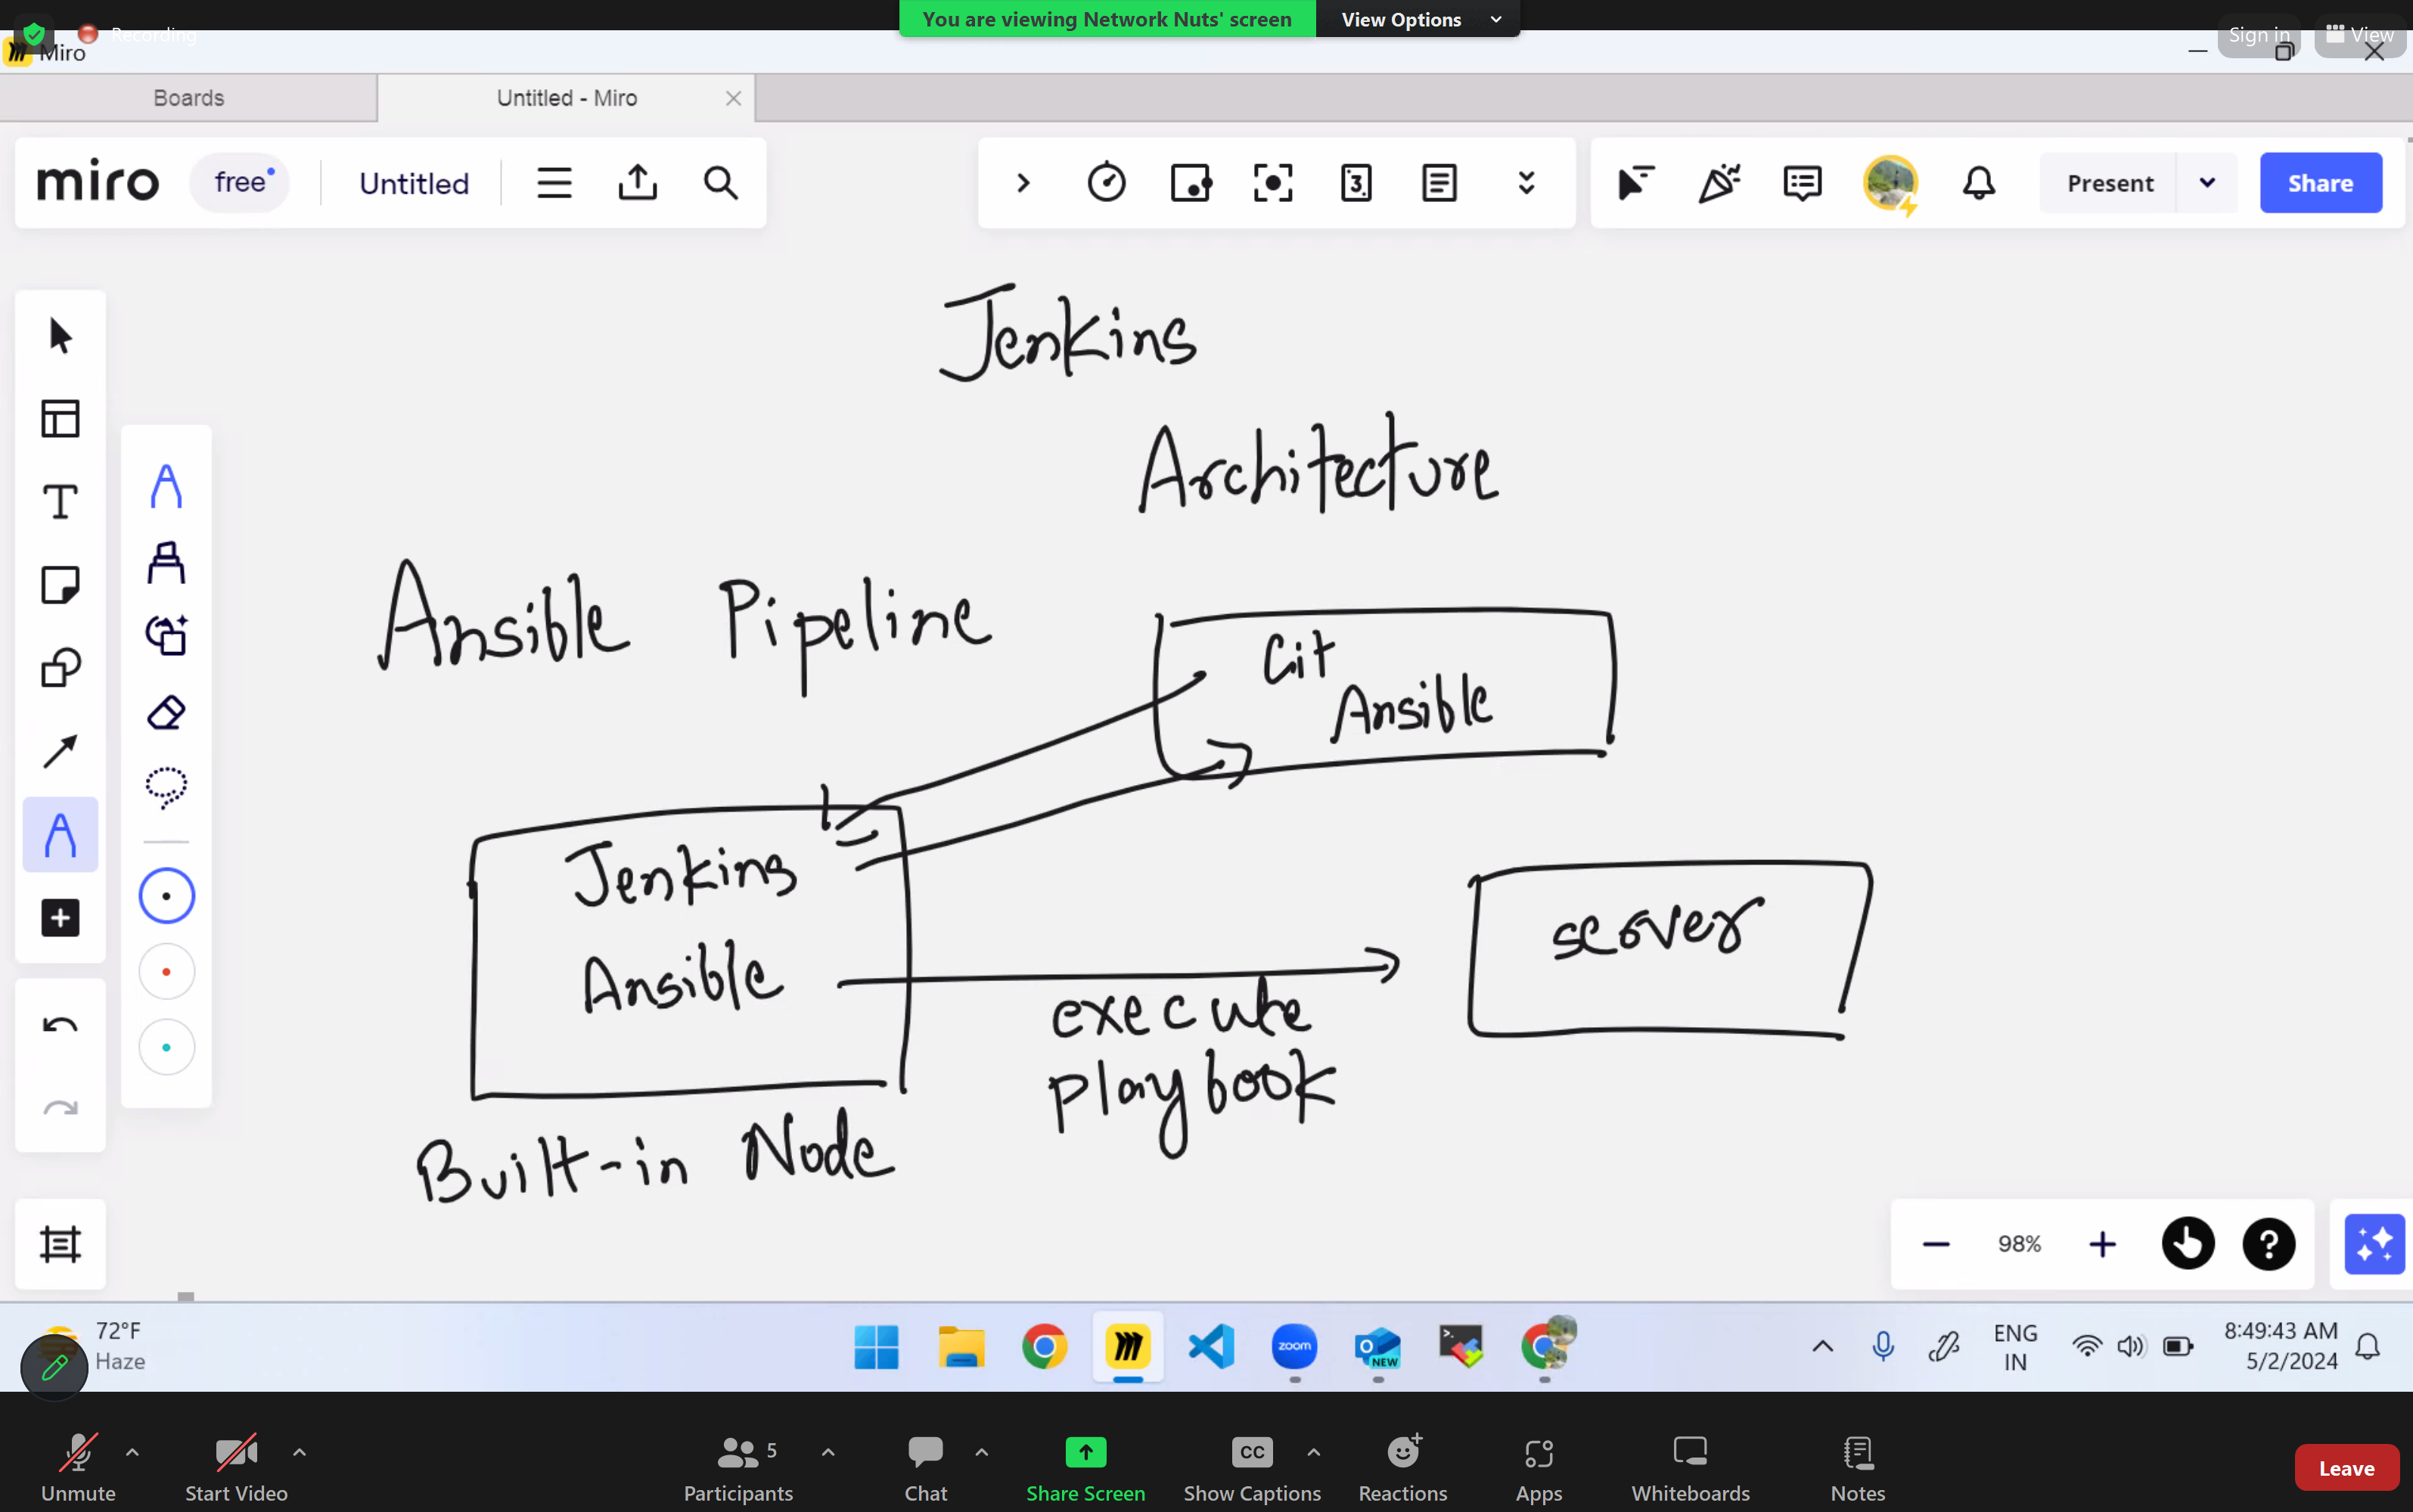 You are viewing Network Nuts' screen
View Options
Recording
Sign in
View
Miro
Boards
Untitled - Miro
miro
free
Untitled
3
Present
Share
Jenkins
Architecture
Ansible Pipeline
Git
Ansible
Jenkins
Ansible
server
execute
playbook
Built-in Node
98%
72°F
Haze
zoom
NEW
ENG
IN
8:49:43 AM
5/2/2024
Unmute
Start Video
5
Participants
Chat
Share Screen
CC
Show Captions
Reactions
Apps
Whiteboards
Notes
Leave